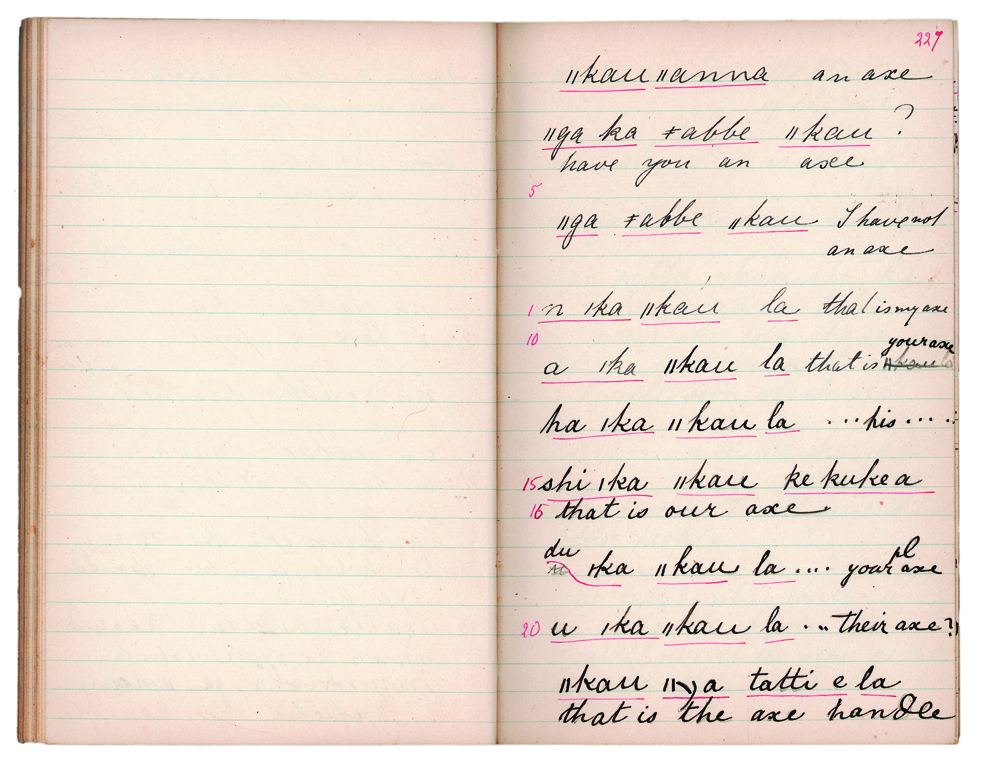 227
ǁkau ǁanna an axe
ǁga ka ǂabbe ǁkau ?
have you an axe
5
ǁga ǂabbe ǁkau I have not
an axe
1 n ǀka ǁkáu la that is my axe
10 your axe
a ǀka ǁkau la that is ǁkau la
ha ǀka ǁkau la ... his ....
15 shi ǀka ǁkau ke kuke a
16 that is our axe
du pl
ǀka ǁkau la .... your axe
20 u ǀka ǁkau la ... their axe?
ǁkau tatti e la
that is the axe handle